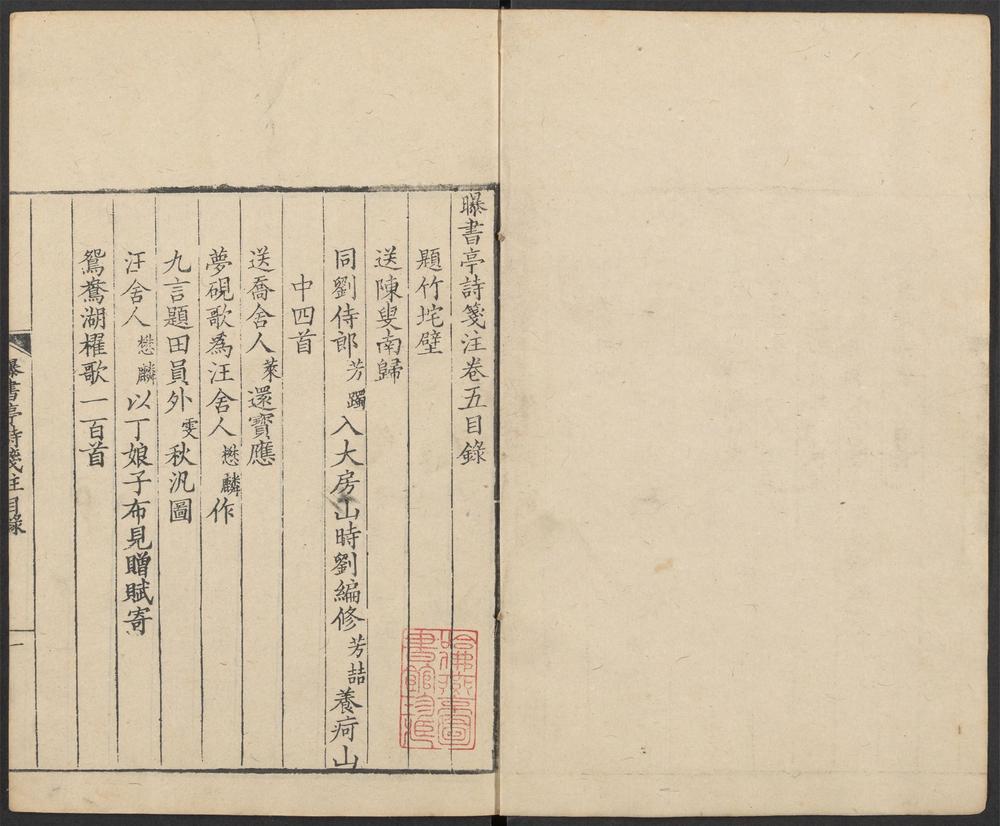 曝書亭詩箋注卷五目錄
題竹垞壁
送陳叟南歸
同劉侍郎芳躅入大房山時劉編修芳喆養疴山
中四首
送喬舍人萊還寶應
夢硯歌為汪舍人懋麟作
九言題田員外雯秋汎圖
汪舍人懋麟以丁娘子布見贈賦寄
鴛鴦湖櫂歌一百首
曝書亭詩箋注目錄
一
哈佛燕京圖
書館珍藏